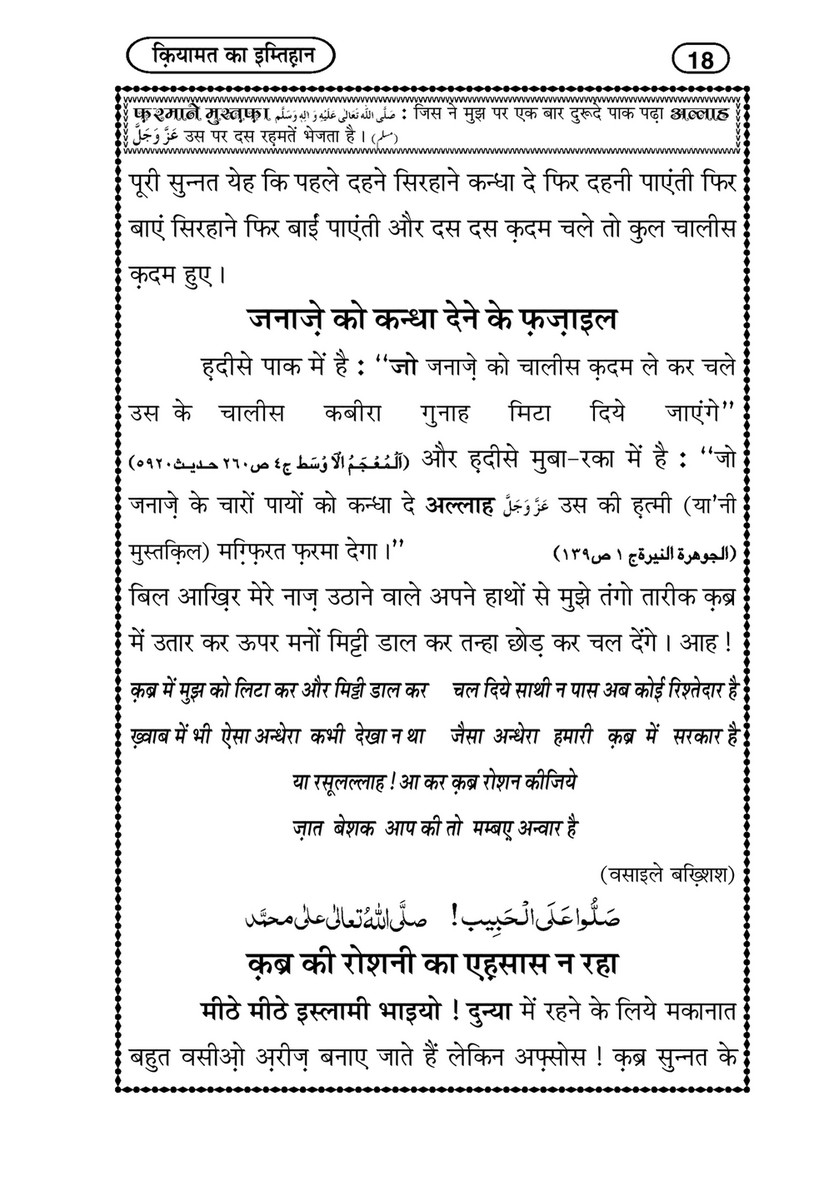 क़ियामत का इम्तिह़ान
18
फ़रमाने मुस्त़फ़ा صَلَّى اللّٰهُ تَعَالٰى عَلَيْهِ وَاٰلِهٖ وَسَلَّم : जिस ने मुझ पर एक बार दुरूदे पाक पढ़ा अल्लाह
عَزَّوَجَلَّ उस पर दस रह़मतें भेजता है । (مسلم)
पूरी सुन्नत येह कि पहले दहने सिरहाने कन्धा दे फिर दहनी पाएंती फिर
बाएं सिरहाने फिर बाईं पाएंती और दस दस क़दम चले तो कुल चालीस
क़दम हुए ।
जनाज़े को कन्धा देने के फ़ज़ाइल
ह़दीसे पाक में है : ‘‘जो जनाज़े को चालीस क़दम ले कर चले
उस के चालीस कबीरा गुनाह मिटा दिये जाएंगे’’
(اَلْمُعْجَمُ الْاَوْسَط ج٤ ص٢٦٠ حديث٥٩٢٠) और ह़दीसे मुबा-रका में है : ‘‘जो
जनाज़े के चारों पायों को कन्धा दे अल्लाह عَزَّوَجَلَّ उस की ह़त्मी (या'नी
मुस्तक़िल) मग़्फ़िरत फ़रमा देगा ।’’ (الجوهرة النيرة ج ١ ص١٣٩)
बिल आख़िर मेरे नाज़ उठाने वाले अपने हाथों से मुझे तंगो तारीक क़ब्र
में उतार कर ऊपर मनों मिट्टी डाल कर तन्हा छोड़ कर चल देंगे । आह !
क़ब्र में मुझ को लिटा कर और मिट्टी डाल कर चल दिये साथी न पास अब कोई रिश्तेदार है
ख़्वाब में भी ऐसा अन्धेरा कभी देखा न था जैसा अन्धेरा हमारी क़ब्र में सरकार है
या रसूलल्लाह ! आ कर क़ब्र रोशन कीजिये
ज़ात बेशक आप की तो मम्बए़ अन्वार है
(वसाइले बख़्शिश)
صَلُّوا عَلَى الْحَبِيب! صلَّى اللّٰهُ تعالٰى على محمَّد
क़ब्र की रोशनी का एह़सास न रहा
मीठे मीठे इस्लामी भाइयो ! दुन्या में रहने के लिये मकानात
बहुत वसीओ़ अ़रीज़ बनाए जाते हैं लेकिन अफ़्सोस ! क़ब्र सुन्नत के